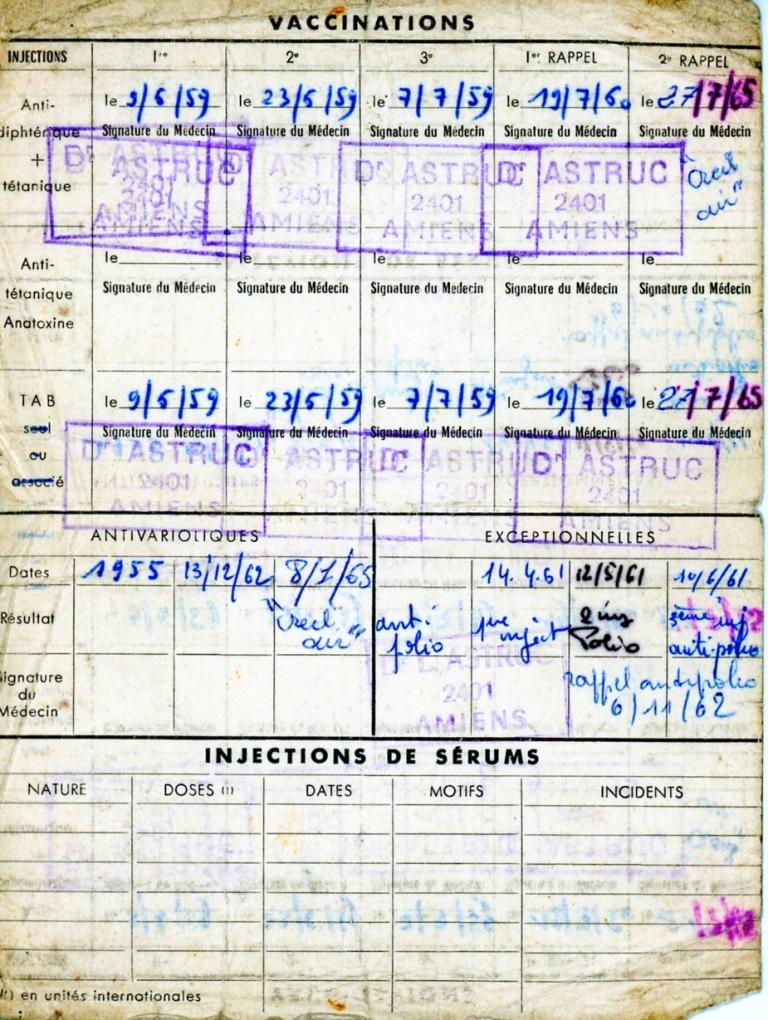 VACCINATIONS
INJECTIONS 1re 2e 3e 1er RAPPEL 2e RAPPEL
Anti-diphtérique + tétanique
le 9/6/59 le 23/6/59 le 7/7/59 le 19/7/60 le 27/7/65
Signature du Médecin Signature du Médecin Signature du Médecin Signature du Médecin Signature du Médecin
Dr ASTRUC 2401 AMIENS
Dr ASTRUC 2401 AMIENS
Dr ASTRUC 2401 AMIENS
Dr ASTRUC 2401 AMIENS
"Creil air"
Anti-tétanique Anatoxine
le le le le le
Signature du Médecin Signature du Médecin Signature du Médecin Signature du Médecin Signature du Médecin
TAB seul ou associé
le 9/6/59 le 23/6/59 le 7/7/59 le 19/7/60 le 27/7/65
Signature du Médecin Signature du Médecin Signature du Médecin Signature du Médecin Signature du Médecin
Dr ASTRUC 2401 AMIENS
Dr ASTRUC 2401 AMIENS
Dr ASTRUC 2401 AMIENS
Dr ASTRUC 2401 AMIENS
ANTIVARIOLIQUES EXCEPTIONNELLES
Dates 1955 13/12/62 8/1/65 14.4.61 12/5/61 10/6/61
Résultat "Creil air" anti-polio 1re inject 2 inj Polio 3ème inj anti-polio
Signature du Médecin
Dr ASTRUC 2401 AMIENS
rappel antipolio
6/11/62
INJECTIONS DE SÉRUMS
NATURE DOSES (1) DATES MOTIFS INCIDENTS
(1) en unités internationales